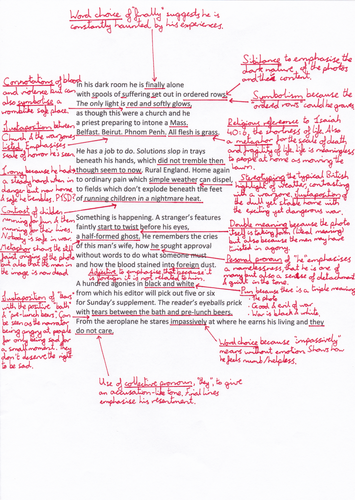 Word choice of "finally" suggests he is
constantly haunted by his experiences.
Sibilance to emphasise the
dark nature of the photos
and their content.
Connotations of blood
and violence but can
also symbolise a
womblike safe place.
In his dark room he is finally alone
with spools of suffering set out in ordered rows.
The only light is red and softly glows,
as though this were a church and he
a priest preparing to intone a Mass.
Belfast. Beirut. Phnom Penh. All flesh is grass.
Symbolism because the
"ordered rows" could be graves
Juxtaposition between
Church & the warzones
listed. Emphasises
scale of horror he's seen
Religious reference to Isaiah
40:6, the shortness of life. Also
a metaphor for the scale of death
and fragility of life is meaningless
to people at home as mowing the
lawn
He has a job to do. Solutions slop in trays
beneath his hands, which did not tremble then
though seem to now. Rural England. Home again
to ordinary pain which simple weather can dispel,
to fields which don't explode beneath the feet
of running children in a nightmare heat.
Irony because he had
a steady hand when in
danger but now home
& safe he trembles. PTSD?
Stereotyping the typical British
small talk of weather, contrasting
with a warzone, juxtaposition of
the dull yet stable home with
the exciting yet dangerous war.
Contrast of children
running for fun & them
running for their lives.
Nobody is safe in war
Something is happening. A stranger's features
faintly start to twist before his eyes,
a half-formed ghost. He remembers the cries
of this man's wife, how he sought approval
without words to do what someone must
and how the blood stained into foreign dust.
Double meaning because the photo
itself is taking form (literal meaning)
but also because the man may have
twisted in agony.
Metaphor shows the still
faint image of the photo
but also that the man in
the image is now dead
Personal pronoun of "he" emphasises
a namelessness, that he is one of
many but also a sense of detachment
& guilt in the tone.
Adjective to emphasise that because it
is foreign it is not related to him
A hundred agonies in black and white
from which his editor will pick out five or six
for Sunday's supplement. The reader's eyeballs prick
with tears between the bath and pre-lunch beers.
From the aeroplane he stares impassively at where he earns his living and they
do not care.
Pun because there is a triple meaning
• The photo
• Good & evil of war
• War is black & white
Juxtaposition of "tears"
with the positive
"pre-lunch beers". Can
be seen as the narrator
being angry at people
for only being sad for
a small moment. They
don't deserve the right
to be sad.
Word choice because "impassively"
means without emotion. Shows how
he feels numb/helpless.
Use of collective pronoun, "they", to give
an accusation-like tone. Final lines
emphasise his resentment.